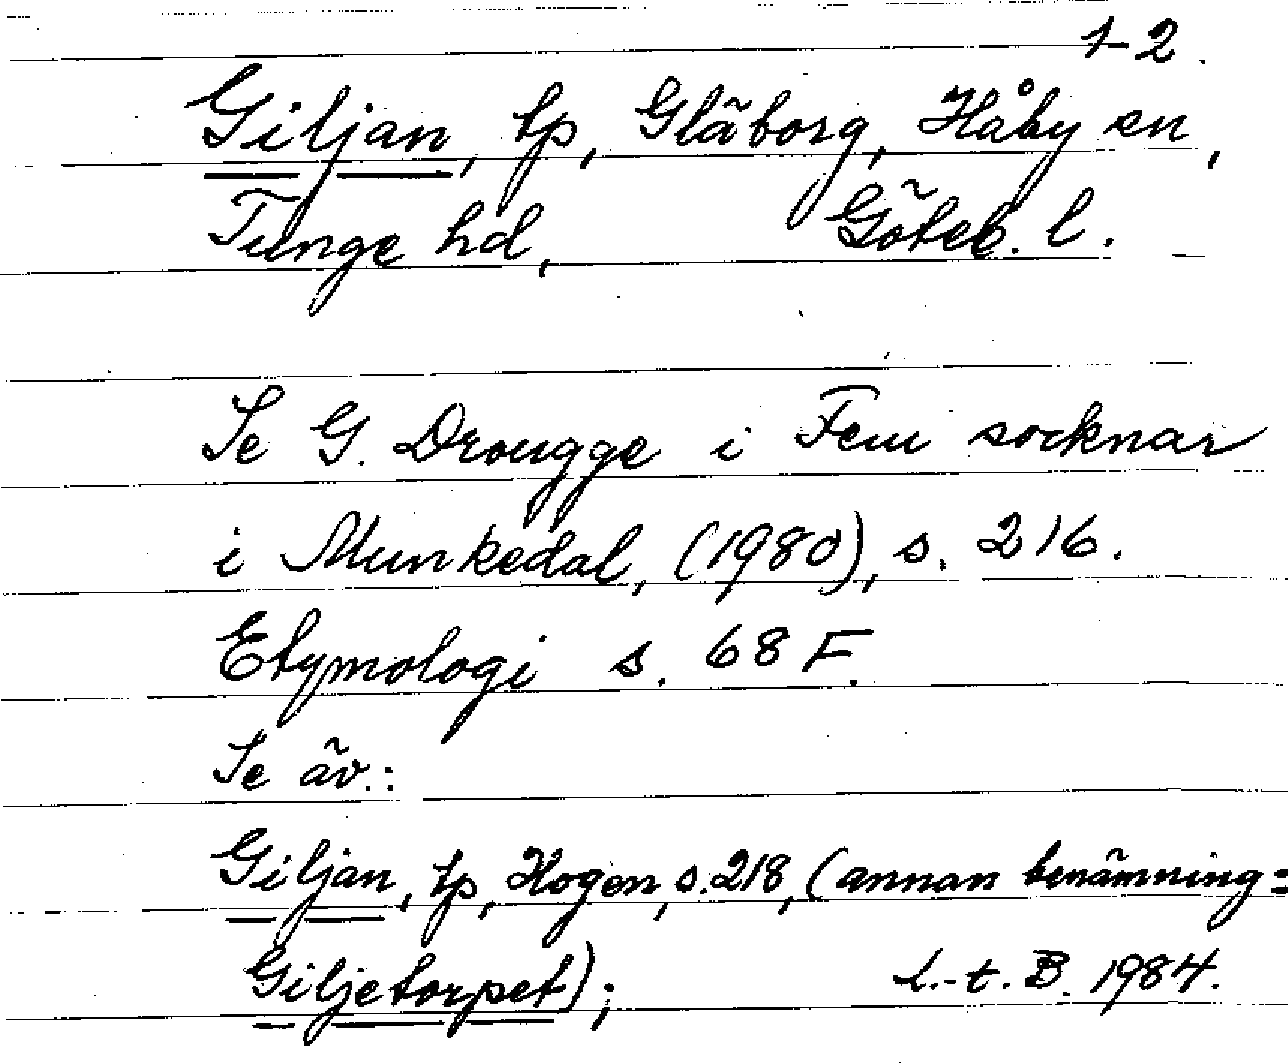 1-2.
Giljan, tp, Gläborg, Håby sn,
Tunge hd, Göteb. l.
Se G. Drougge i Fem socknar
i Munkedal, (1980), s. 216.
Etymologi s. 68 F.
Se äv.:
Giljan, tp, Hogen, s. 218, (annan benämning =
Giljetorpet); L.-t. B. 1984.